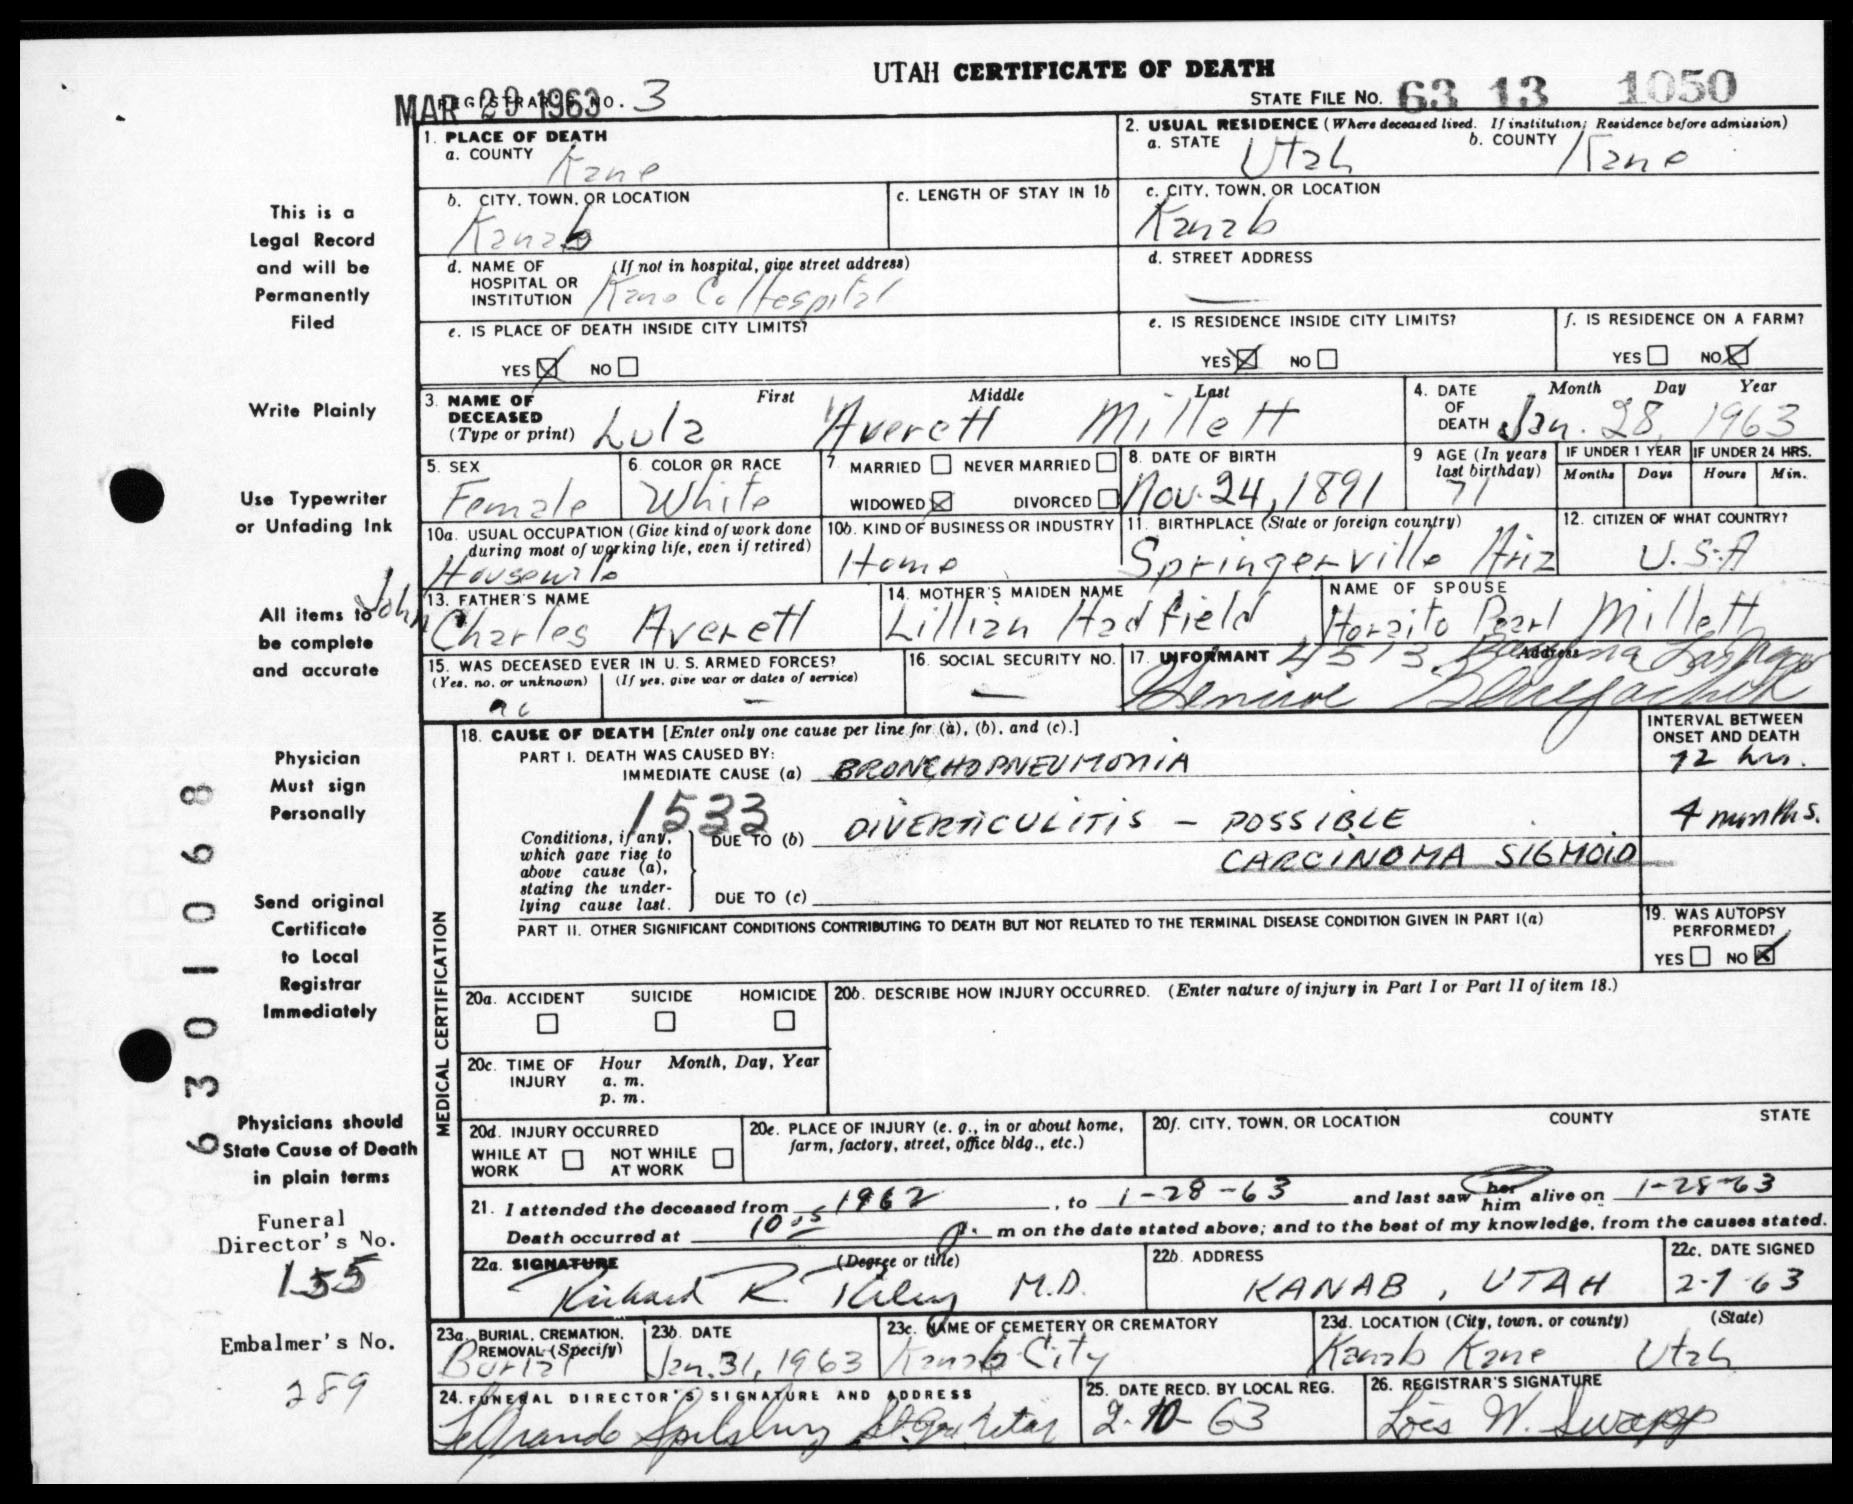 UTAH CERTIFICATE OF DEATH
MAR 29 1963
REGISTRAR'S NO. 3
STATE FILE NO. 63 13 1050
1. PLACE OF DEATH
a. COUNTY
Kane
2. USUAL RESIDENCE (Where deceased lived. If institution; Residence before admission)
a. STATE Utah b. COUNTY Kane
b. CITY, TOWN, OR LOCATION
Kanab
c. LENGTH OF STAY IN 1b
c. CITY, TOWN, OR LOCATION
Kanab
d. NAME OF HOSPITAL OR INSTITUTION (If not in hospital, give street address)
Kane Co Hospital
d. STREET ADDRESS
—
e. IS PLACE OF DEATH INSIDE CITY LIMITS?
YES NO
e. IS RESIDENCE INSIDE CITY LIMITS?
YES NO
f. IS RESIDENCE ON A FARM?
YES NO
3. NAME OF DECEASED (Type or print)
First Middle Last
Lula Averett Millett
4. DATE OF DEATH Month Day Year
Jan. 28, 1963
5. SEX
Female
6. COLOR OR RACE
White
7. MARRIED NEVER MARRIED
WIDOWED DIVORCED
8. DATE OF BIRTH
Nov. 24, 1891
9 AGE (In years last birthday)
71
IF UNDER 1 YEAR
Months Days
IF UNDER 24 HRS.
Hours Min.
10a. USUAL OCCUPATION (Give kind of work done during most of working life, even if retired)
Housewife
10b. KIND OF BUSINESS OR INDUSTRY
Home
11. BIRTHPLACE (State or foreign country)
Springerville Ariz
12. CITIZEN OF WHAT COUNTRY?
U.S.A
13. FATHER'S NAME
John Charles Averett
14. MOTHER'S MAIDEN NAME
Lillian Hadfield
NAME OF SPOUSE
Horaito Pearl Millett
15. WAS DECEASED EVER IN U. S. ARMED FORCES?
(Yes, no, or unknown) (If yes, give war or dates of service)
no —
16. SOCIAL SECURITY NO.
—
17. INFORMANT Address
4513
18. CAUSE OF DEATH [Enter only one cause per line for (a), (b), and (c).]
INTERVAL BETWEEN ONSET AND DEATH
PART I. DEATH WAS CAUSED BY:
IMMEDIATE CAUSE (a) BRONCHOPNEUMONIA
72 hrs.
1533
Conditions, if any, which gave rise to above cause (a), stating the underlying cause last.
DUE TO (b) DIVERTICULITIS - POSSIBLE
4 months.
CARCINOMA SIGMOID
DUE TO (c)
PART II. OTHER SIGNIFICANT CONDITIONS CONTRIBUTING TO DEATH BUT NOT RELATED TO THE TERMINAL DISEASE CONDITION GIVEN IN PART I(a)
19. WAS AUTOPSY PERFORMED?
YES NO
MEDICAL CERTIFICATION
20a. ACCIDENT SUICIDE HOMICIDE
20b. DESCRIBE HOW INJURY OCCURRED. (Enter nature of injury in Part I or Part II of item 18.)
20c. TIME OF INJURY Hour Month, Day, Year
a. m.
p. m.
20d. INJURY OCCURRED
WHILE AT WORK NOT WHILE AT WORK
20e. PLACE OF INJURY (e. g., in or about home, farm, factory, street, office bldg., etc.)
20f. CITY, TOWN, OR LOCATION COUNTY STATE
21. I attended the deceased from 1962, to 1-28-63 and last saw her him alive on 1-28-63
Death occurred at 10 05 p. m on the date stated above; and to the best of my knowledge, from the causes stated.
22a. SIGNATURE (Degree or title)
Richard R. Riley M.D.
22b. ADDRESS
KANAB, UTAH
22c. DATE SIGNED
2-7-63
23a. BURIAL, CREMATION, REMOVAL (Specify)
Burial
23b. DATE
Jan. 31, 1963
23c. NAME OF CEMETERY OR CREMATORY
Kanab City
23d. LOCATION (City, town, or county) (State)
Kanab Kane Utah
24. FUNERAL DIRECTOR'S SIGNATURE AND ADDRESS
Spilsbury
25. DATE RECD. BY LOCAL REG.
2-10-63
26. REGISTRAR'S SIGNATURE
Lois W. Swapp
This is a
Legal Record
and will be
Permanently
Filed
Write Plainly
Use Typewriter
or Unfading Ink
All items to
be complete
and accurate
Physician
Must sign
Personally
Send original
Certificate
to Local
Registrar
Immediately
Physicians should
State Cause of Death
in plain terms
Funeral
Director's No.
155
Embalmer's No.
289
6301068